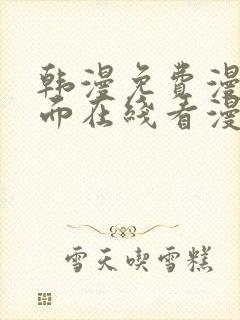 韩漫免费漫
而在线看漫
雪天喫雪糕